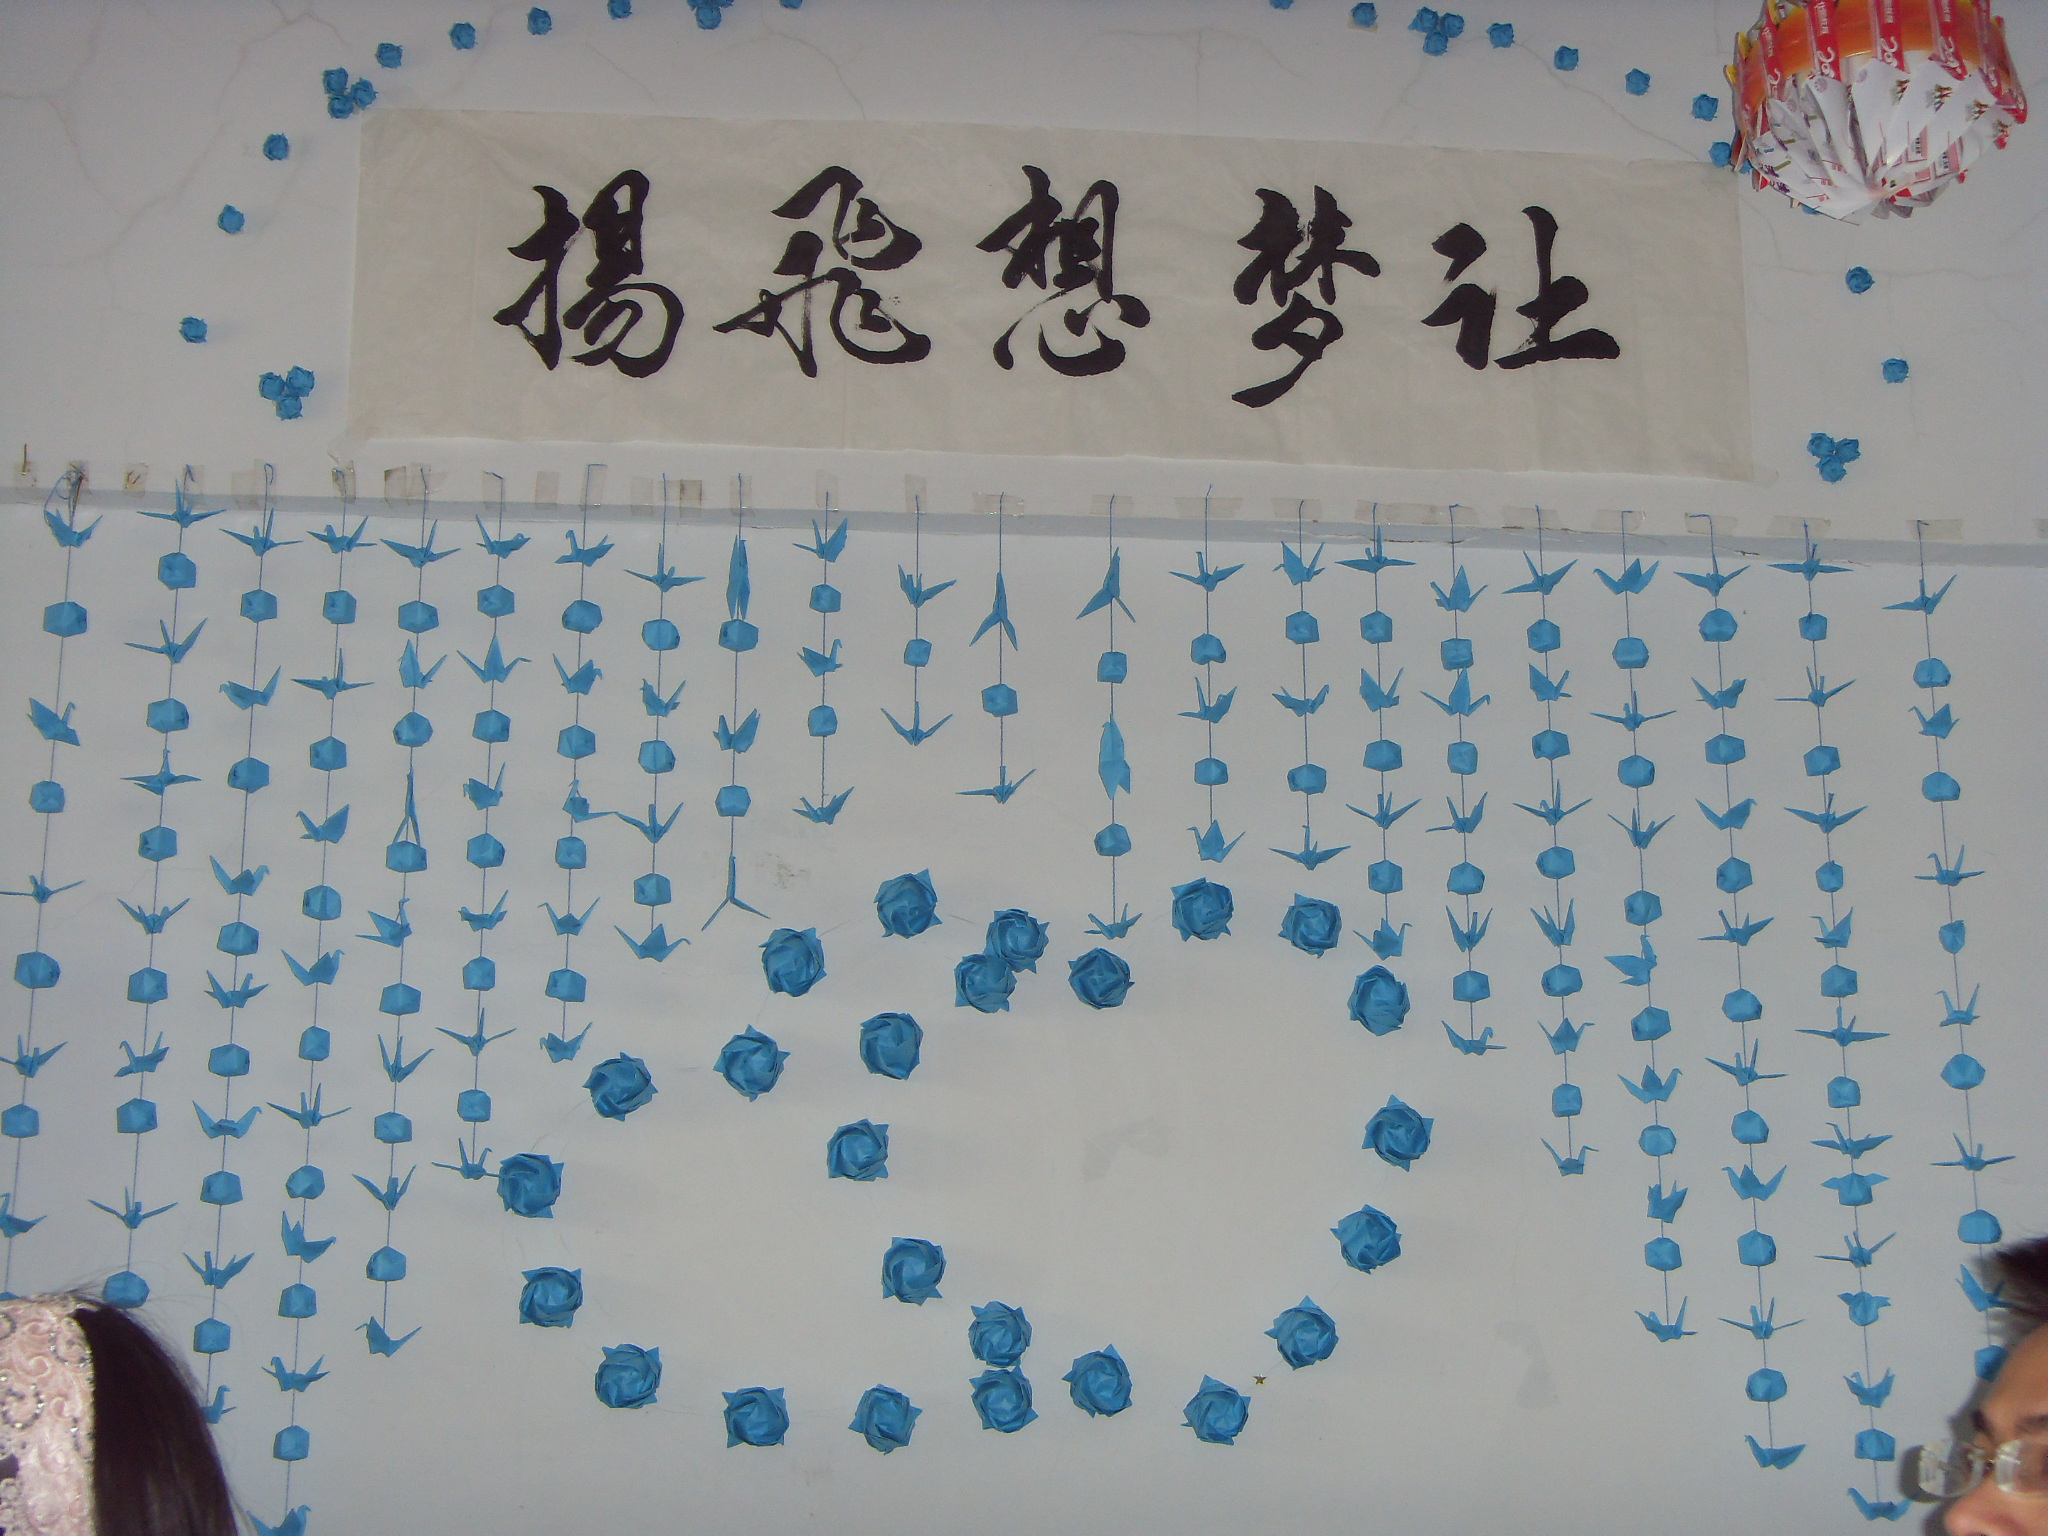 让梦想飛揚